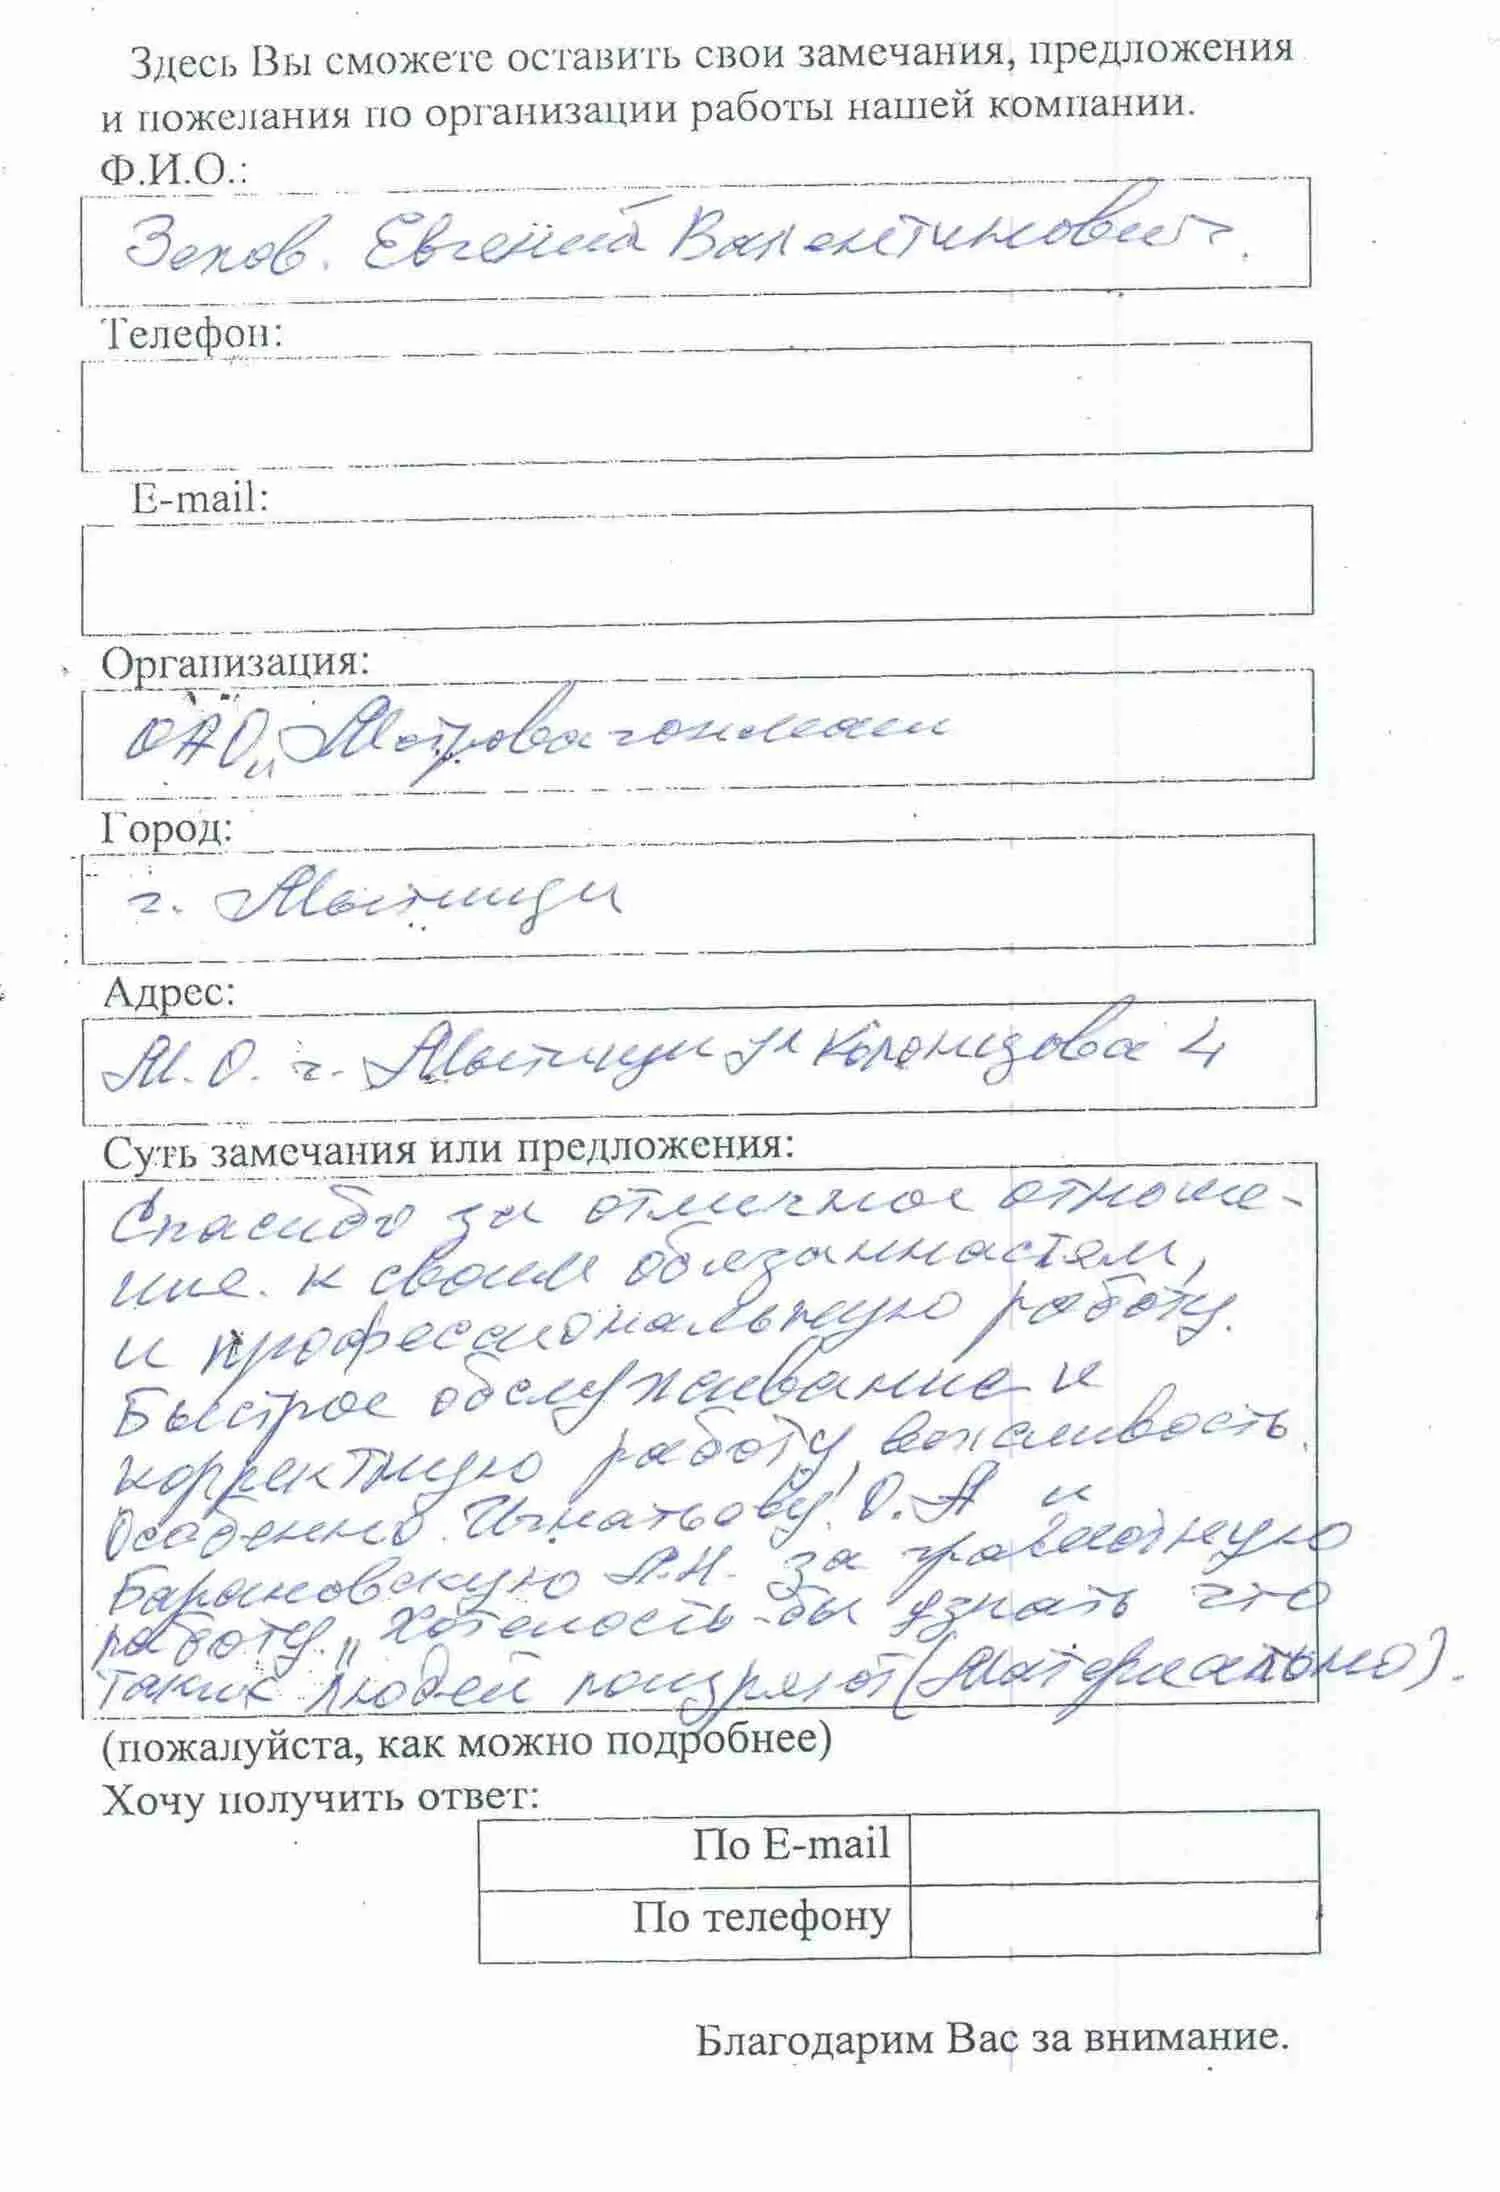 Здесь Вы сможете оставить свои замечания, предложения
и пожелания по организации работы нашей компании.
Ф.И.О.:
Зепов. Евгений Валентинович.
Телефон:
E-mail:
Организация:
ОАО „Метровагонмаш
Город:
г. Мытищи
Адрес:
М.О. г. Мытищи ул Колонцова 4
Суть замечания или предложения:
Спасибо за отличное отноше-
ние. к своим обязанностям,
и профессиональную работу.
Быстрое обслуживание и
корректную работу, вежливость.
Особенно. Игнатьову О.А и
Барановскую А.Н. за грамотную
работу. „Хотелость-бы узнать что
таких людей поизряют (Материально).
(пожалуйста, как можно подробнее)
Хочу получить ответ:
По E-mail
По телефону
Благодарим Вас за внимание.